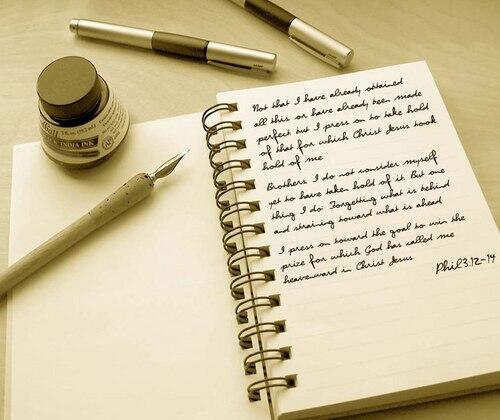 INDIA INK
Not that I have already obtained
all this or have already been made
perfect but I press on to take hold
of that for which Christ Jesus took
hold of me
Brothers I do not consider myself
yet to have taken hold of it. But one
thing I do: Forgetting what is behind
and straining toward what is ahead
I press on toward the goal to win the
prize for which God has called me
heavenward in Christ Jesus.
Phil.3:12-14